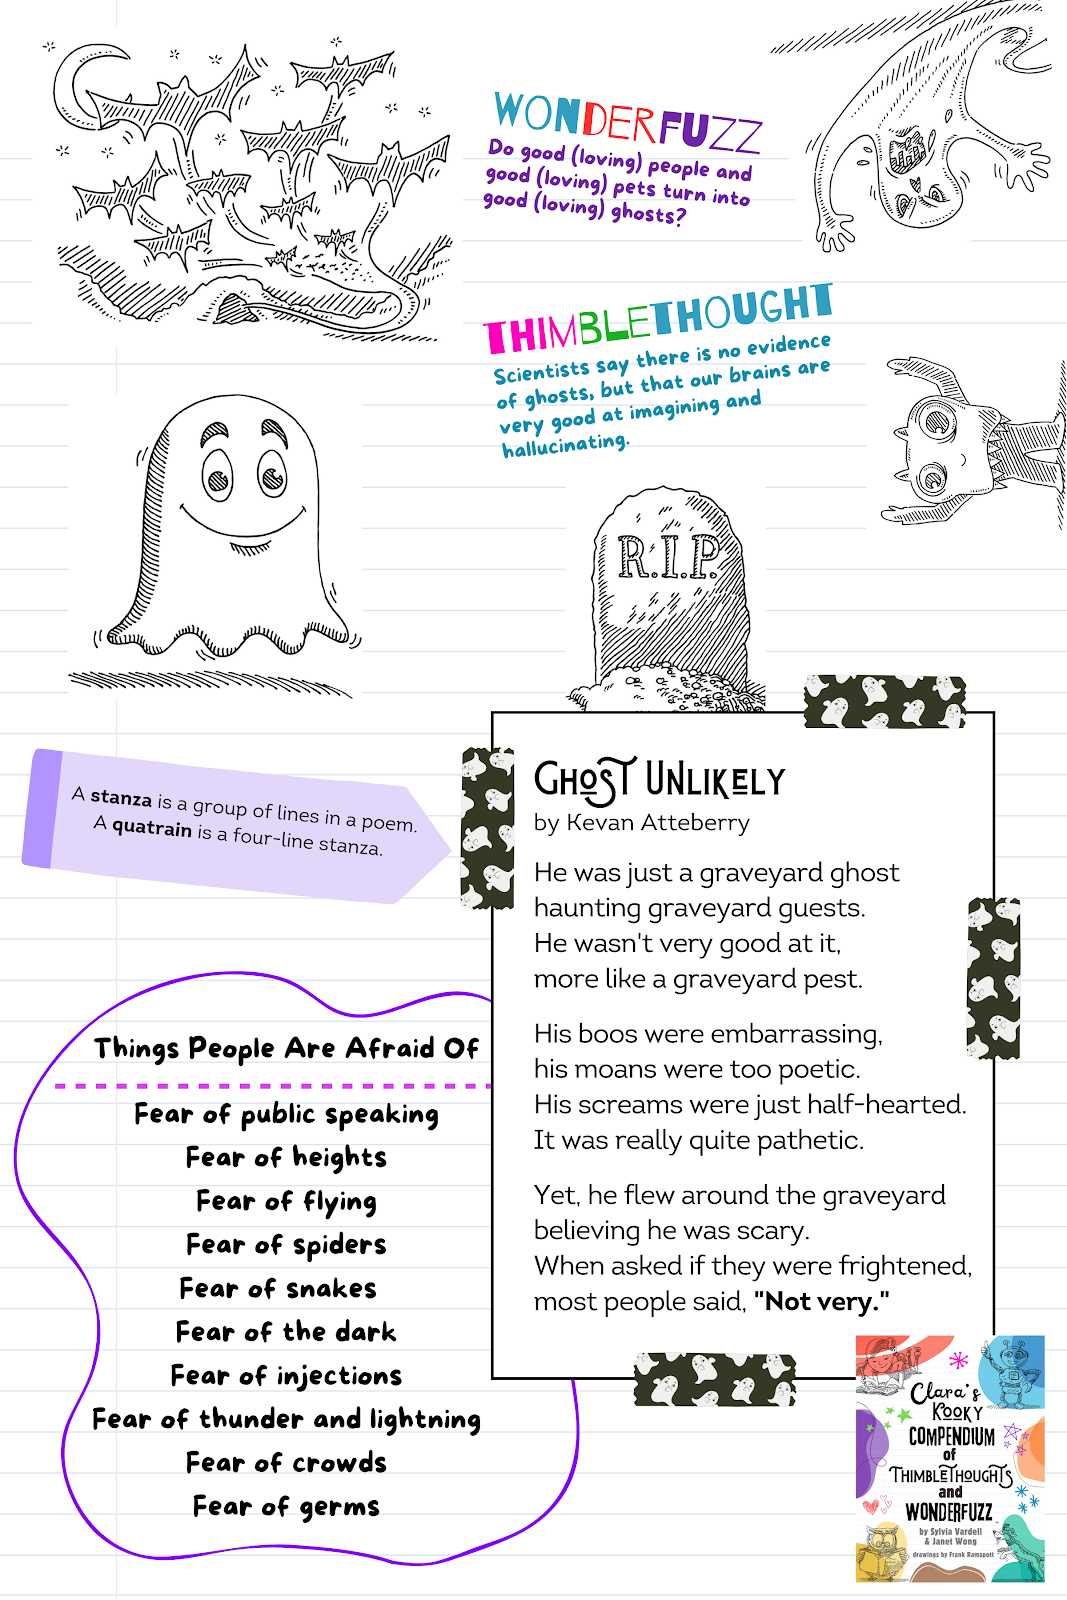 WONDERFUZZ
Do good (loving) people and
good (loving) pets turn into
good (loving) ghosts?
THIMBLETHOUGHT
Scientists say there is no evidence
of ghosts, but that our brains are
very good at imagining and
hallucinating.
R.I.P.
A stanza is a group of lines in a poem.
A quatrain is a four-line stanza.
GHOST UNLIKELY
by Kevan Atteberry
He was just a graveyard ghost
haunting graveyard guests.
He wasn't very good at it,
more like a graveyard pest.
His boos were embarrassing,
his moans were too poetic.
His screams were just half-hearted.
It was really quite pathetic.
Yet, he flew around the graveyard
believing he was scary.
When asked if they were frightened,
most people said, "Not very."
Things People Are Afraid Of
Fear of public speaking
Fear of heights
Fear of flying
Fear of spiders
Fear of snakes
Fear of the dark
Fear of injections
Fear of thunder and lightning
Fear of crowds
Fear of germs
Clara's
KOOKY
COMPENDIUM
of
THIMBLETHOUGHTS
and
WONDERFUZZ
by Sylvia Vardell
& Janet Wong
drawings by Frank Ramspott